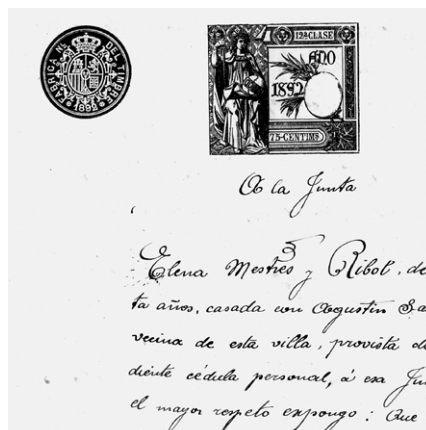 FABRICA NL. DEL TIMBRE
1892
12ª CLASE
AÑO
1892
75-CENTIMS
A la Junta
Elena Mestres y Ribot, de
ta años, casada con Agustin Sa
vecina de esta villa, provista d
diente cédula personal, á esa Jun
el mayor respeto expongo: Que